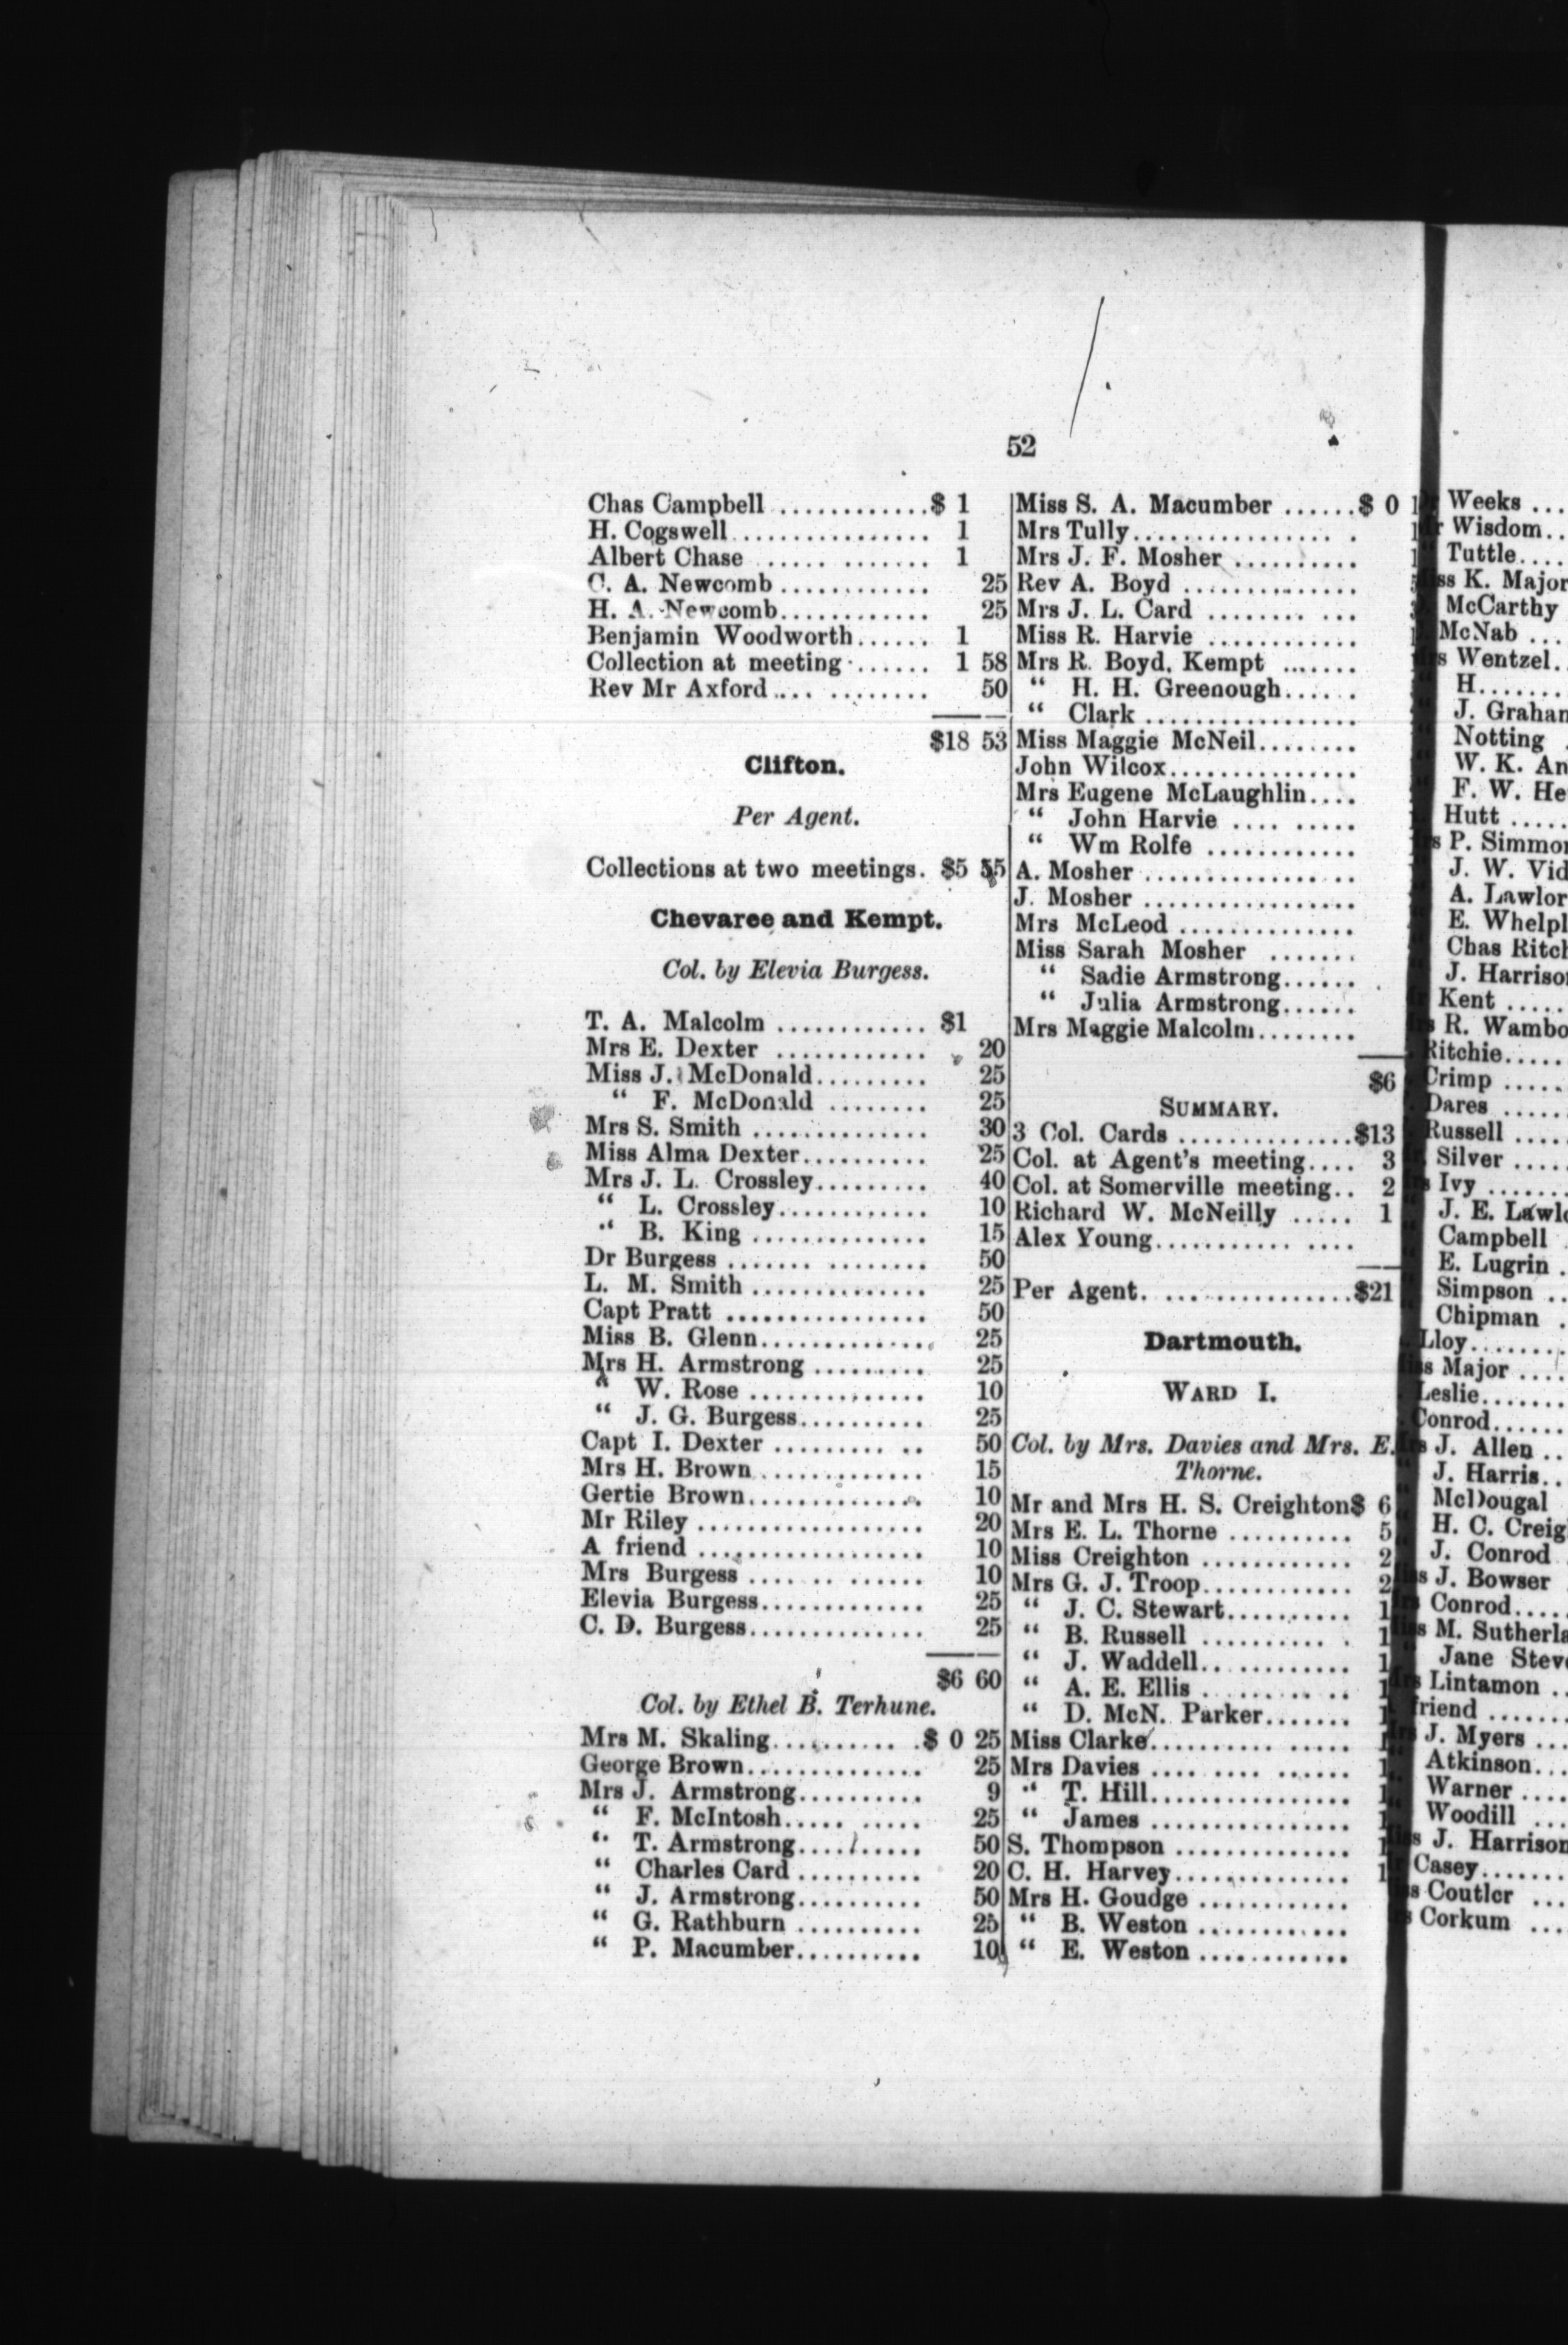 52
Chas Campbell ............$ 1
H. Cogswell ............... 1
Albert Chase ..... ........ 1
C. A. Newcomb ............ 25
H. A. Newcomb............ 25
Benjamin Woodworth...... 1
Collection at meeting ...... 1 58
Rev Mr Axford... ......... 50
$18 53
Clifton.
Per Agent.
Collections at two meetings. $5 55
Chevaree and Kempt.
Col. by Elevia Burgess.
T. A. Malcolm ............ $1
Mrs E. Dexter ............ 20
Miss J. McDonald......... 25
“ F. McDonald ........ 25
Mrs S. Smith .............. 30
Miss Alma Dexter.......... 25
Mrs J. L. Crossley......... 40
“ L. Crossley............ 10
“ B. King .............. 15
Dr Burgess ....... ........ 50
L. M. Smith .............. 25
Capt Pratt ................ 50
Miss B. Glenn.............. 25
Mrs H. Armstrong ......... 25
“ W. Rose .............. 10
“ J. G. Burgess.......... 25
Capt I. Dexter ......... .. 50
Mrs H. Brown............. 15
Gertie Brown.............. 10
Mr Riley .................. 20
A friend .................. 10
Mrs Burgess ...... ...... 10
Elevia Burgess............. 25
C. D. Burgess.............. 25
$6 60
Col. by Ethel B. Terhune.
Mrs M. Skaling.......... .$ 0 25
George Brown.............. 25
Mrs J. Armstrong.......... 9
“ F. McIntosh..... ..... 25
“ T. Armstrong......... 50
“ Charles Card .......... 20
“ J. Armstrong.......... 50
“ G. Rathburn .......... 25
“ P. Macumber.......... 10
Miss S. A. Macumber ......$ 0
Mrs Tully................ .
Mrs J. F. Mosher ..........
Rev A. Boyd ..............
Mrs J. L. Card ........ ...
Miss R. Harvie ............
Mrs R. Boyd, Kempt .......
“ H. H. Greenough......
“ Clark .................
Miss Maggie McNeil........
John Wilcox...............
Mrs Eugene McLaughlin....
“ John Harvie .... .....
“ Wm Rolfe ............
A. Mosher ............... ..
J. Mosher .................
Mrs McLeod ..............
Miss Sarah Mosher .......
“ Sadie Armstrong......
“ Julia Armstrong......
Mrs Maggie Malcolm........
$6
SUMMARY.
3 Col. Cards ..............$13
Col. at Agent's meeting.... 3
Col. at Somerville meeting.. 2
Richard W. McNeilly ..... 1
Alex Young........... ....
Per Agent. ................$21
Dartmouth.
WARD I.
Col. by Mrs. Davies and Mrs. E.
Thorne.
Mr and Mrs H. S. Creighton$ 6
Mrs E. L. Thorne .......... 5
Miss Creighton ............ 2
Mrs G. J. Troop............ 2
“ J. C. Stewart.......... 1
“ B. Russell .......... . 1
“ J. Waddell............ 1
“ A. E. Ellis .......... .. 1
“ D. McN. Parker....... 1
Miss Clarke.......... .....
Mrs Davies .... .... ...... 1
“ T. Hill................ 1
“ James ................ 1
S. Thompson .............. 1
C. H. Harvey.............. 1
Mrs H. Goudge ............
“ B. Weston ............
“ E. Weston ............
Weeks ...
Wisdom..
Tuttle....
K. Major
McCarthy
McNab ...
Wentzel.
H.......
J. Graham
Notting
W. K.
F. W.
Hutt .....
P.
J. W.
A. Lawlor
E.
Chas
J.
Kent .....
R.
Ritchie.....
Crimp .....
Dares .....
Russell ....
Silver .....
Ivy .......
J. E.
Campbell
E. Lugrin .
Simpson ..
Chipman .
Lloy.......
Major ....
Leslie.......
Conrod......
J. Allen ..
J. Harris..
McDougal
H. C.
J. Conrod
J. Bowser
Conrod....
M.
Jane
Lintamon ..
friend ......
J. Myers ...
Atkinson...
Warner ....
Woodill ...
J. Harrison
Casey.......
Coutler ...
Corkum ...